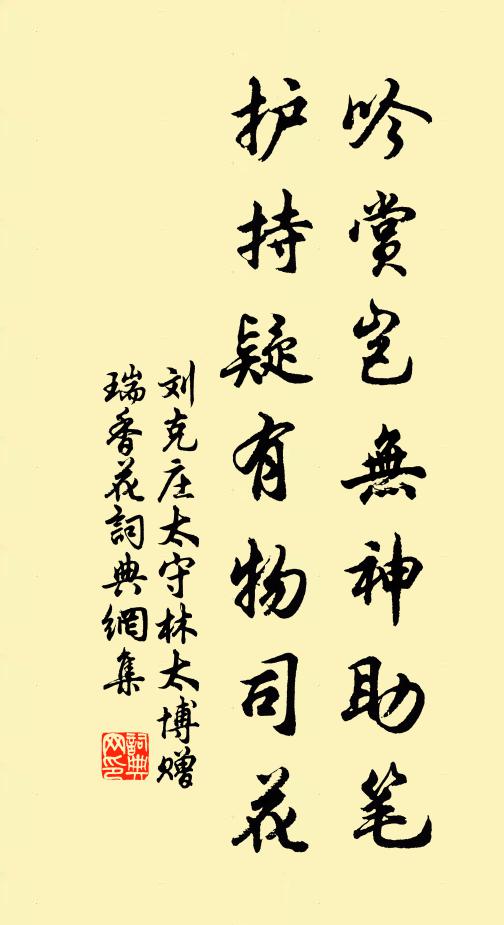 吟赏岂無神助笔
护持疑有物司花
刘克庄太守林太博赠
瑞香花詞典網集
詞典
网印